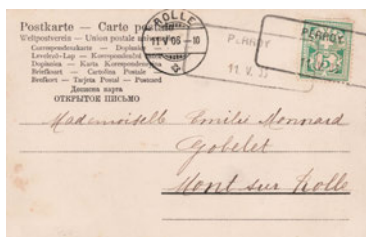 Postkarte — Carte postale
Weltpostverein — Union postale
Correspondenzkarte — Dopisnice
Levelezö-Lap — Korrespondenzkort
Dopisnica — Karta Korespondencyjna
Briefkaart — Cartolina Postale
Brefkort — Tarjeta Postal — Postcard
Дописна карта
ОТКРЫТОЕ ПИСЬМО
ROLLE
11 V 06 — 10
PERROY
11. V.
PERROY
5
Mademoiselle Emilie Monnard
Gobelet
Mont sur Rolle